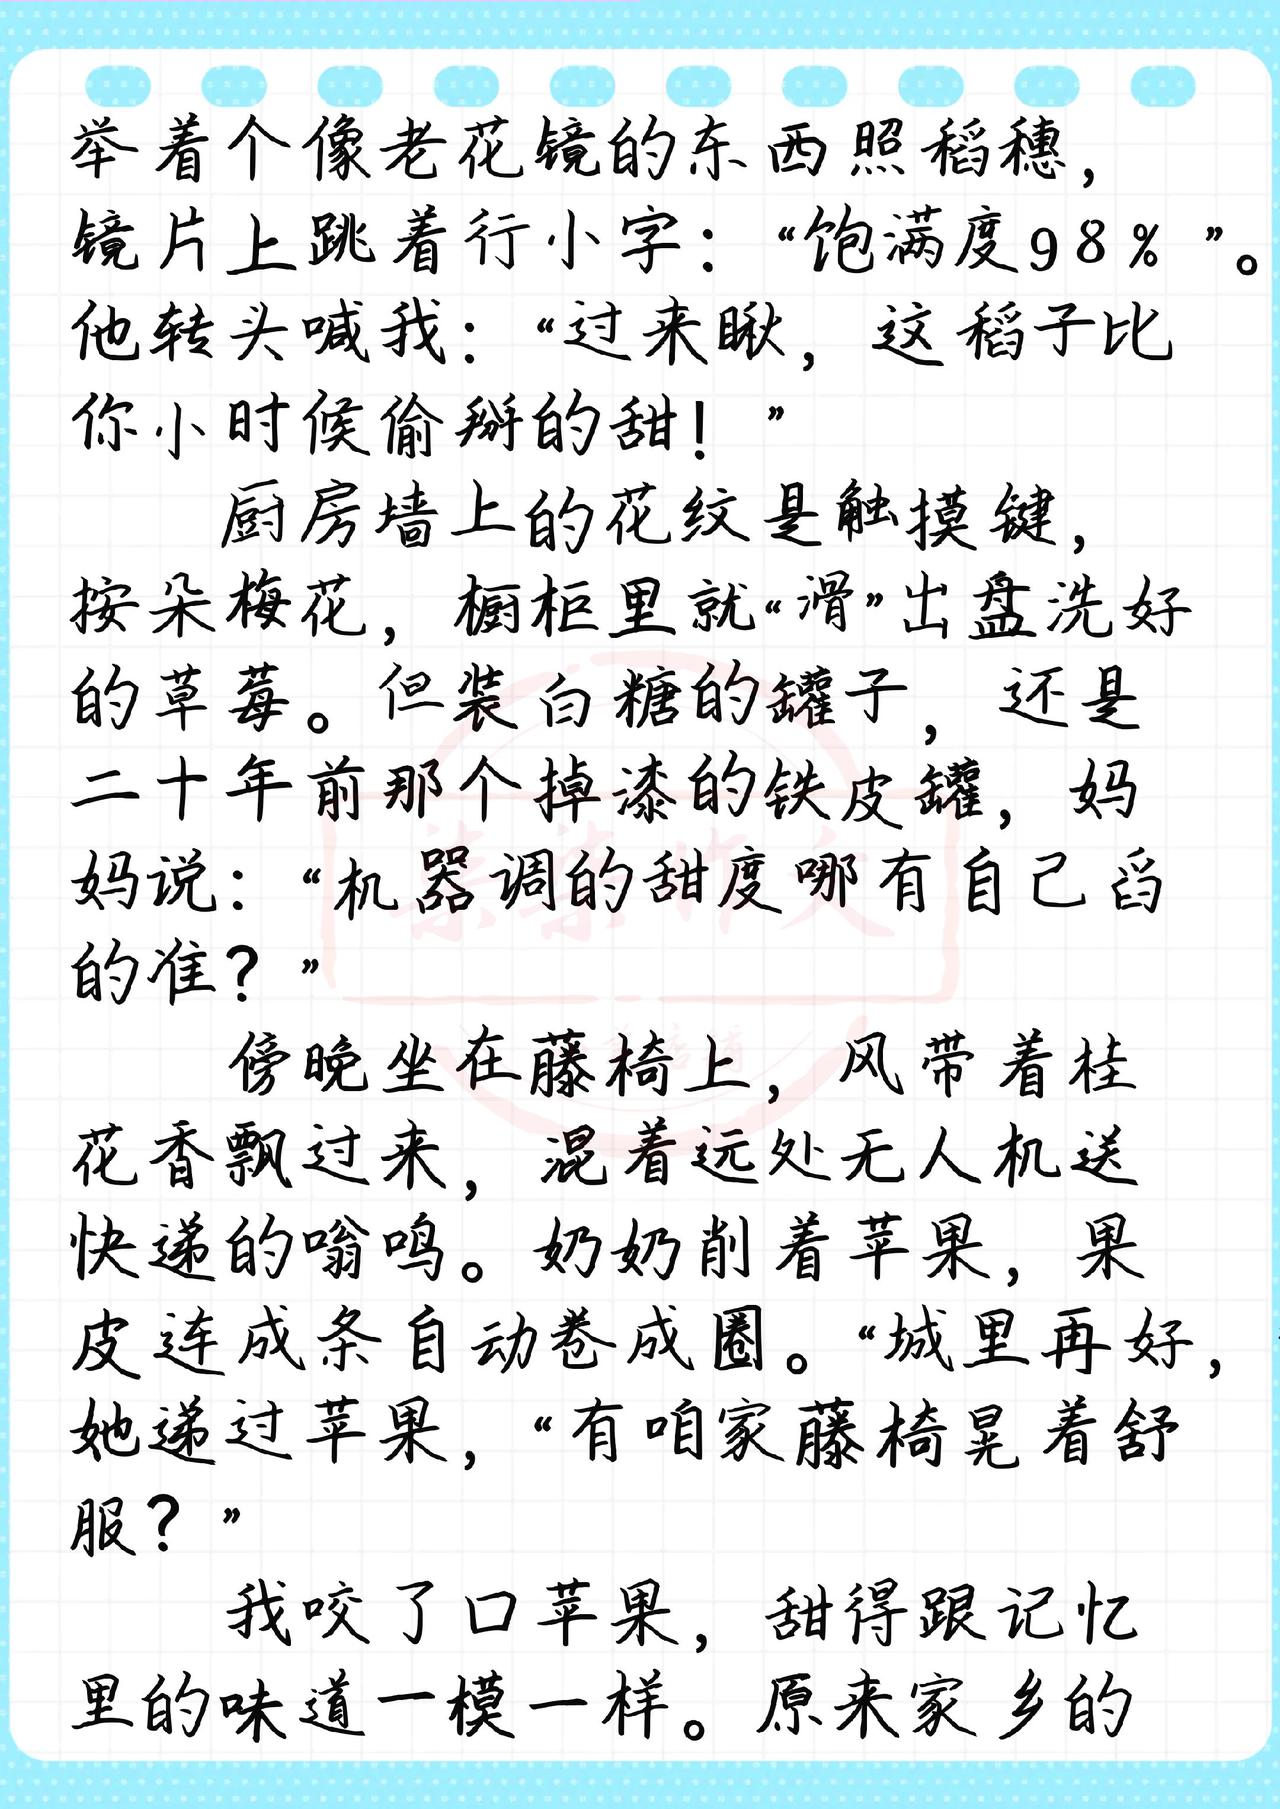 举着个像老花镜的东西照稻穗，
镜片上跳着行小字：“饱满度98%”。
他转头喊我：“过来瞅，这稻子比
你小时候偷掰的甜！”
厨房墙上的花纹是触摸键，
按朵梅花，橱柜里就“滑”出盘洗好
的草莓。但装白糖的罐子，还是
二十年前那个掉漆的铁皮罐，妈
妈说：“机器调的甜度哪有自己舀
的准？”
傍晚坐在藤椅上，风带着桂
花香飘过来，混着远处无人机送
快递的嗡鸣。奶奶削着苹果，果
皮连成条自动卷成圈。“城里再好，
她递过苹果，“有咱家藤椅晃着舒
服？”
我咬了口苹果，甜得跟记忆
里的味道一模一样。原来家乡的